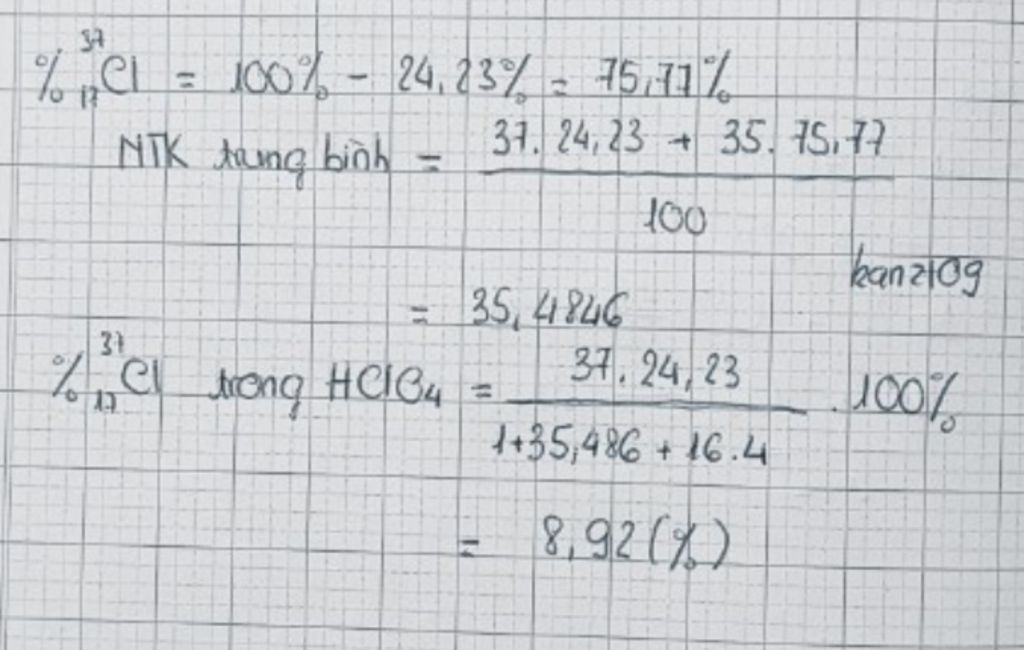 % ³⁷₁₇Cl = 100% - 24,23% = 75,77%
NTK trung bình = (37. 24,23 + 35. 75,77) / 100
kanzi09
= 35,4846
% ³⁷₁₇Cl trong HClO₄ = (37. 24,23) / (1+35,486 + 16.4) . 100%
= 8,92(%)